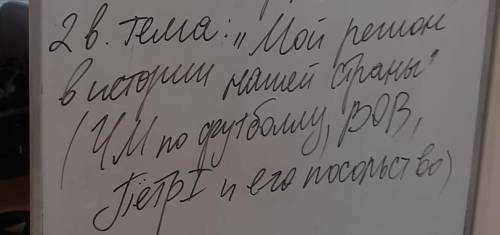 2 в. Тема: „Мой регион
в истории нашей страны"
(ЧМ по футболу, ВОВ,
Пётр I и его посольство)